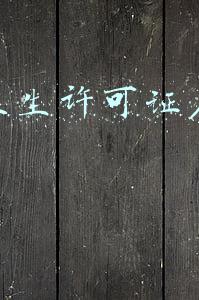 生许可证